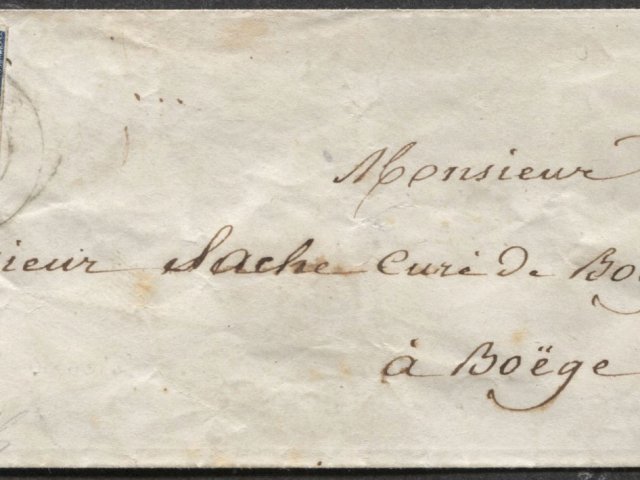 Monsieur
sieur Sache Curé de Boë
à Boëge